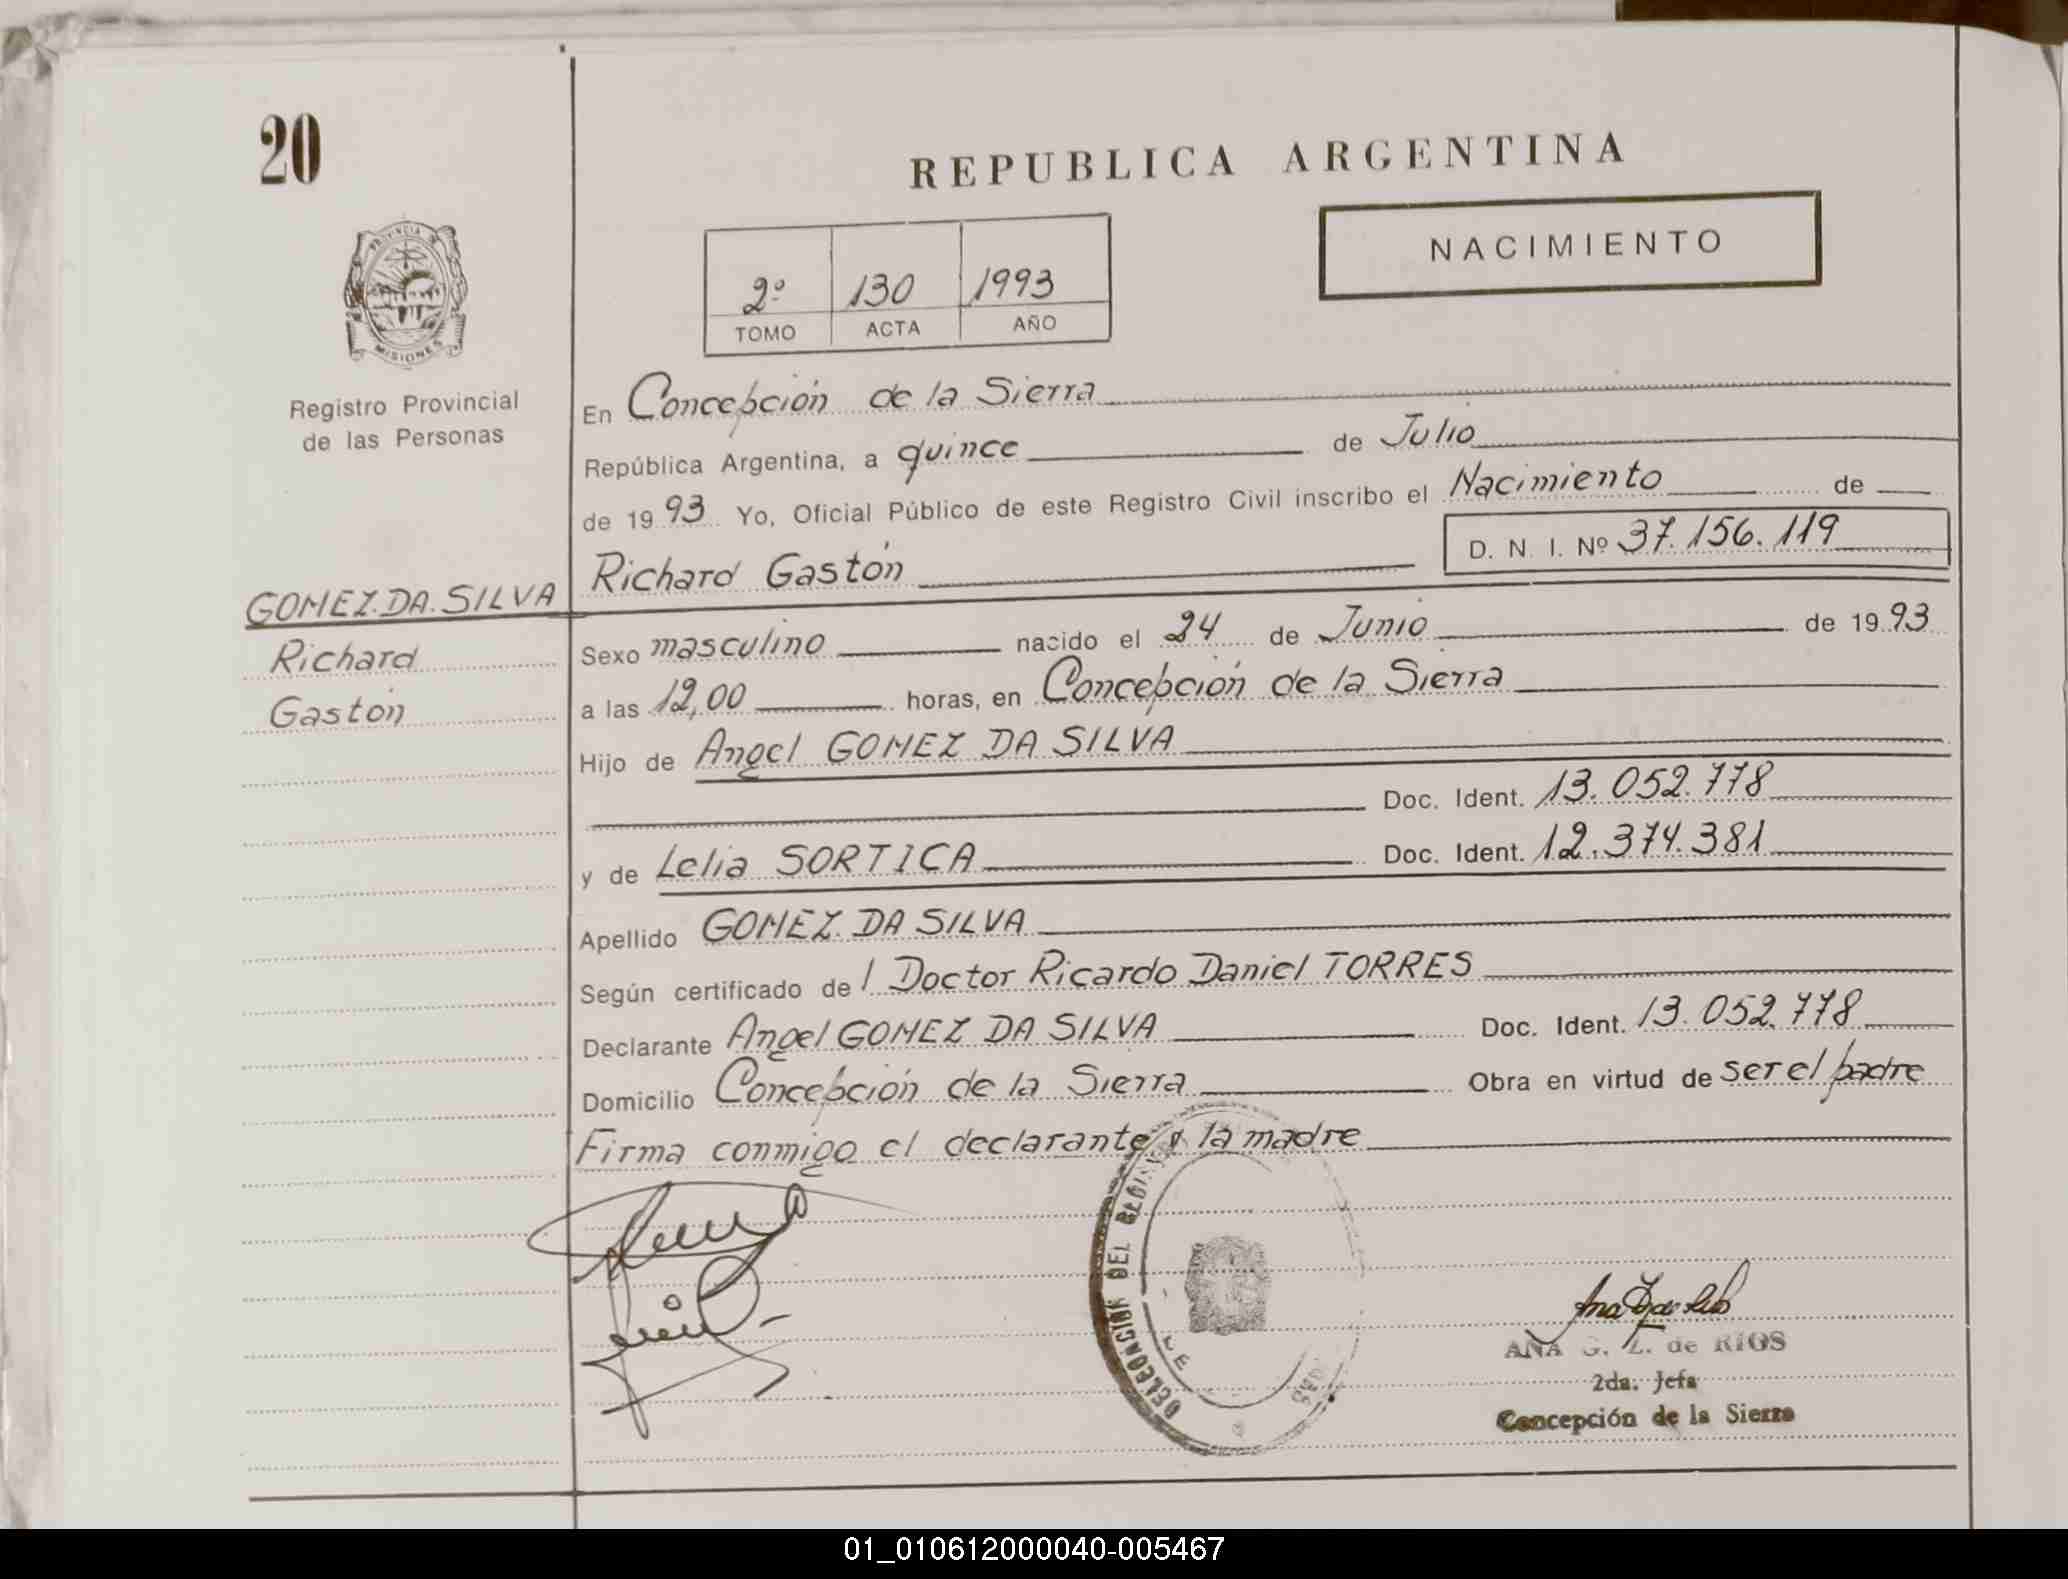 20
REPUBLICA ARGENTINA
NACIMIENTO
2º 130 1993
TOMO ACTA AÑO
PROVINCIA DE
MISIONES
Registro Provincial
de las Personas
En Concepción de la Sierra
República Argentina, a quince de Julio
de 1993 Yo, Oficial Público de este Registro Civil inscribo el Nacimiento de
D. N. I. Nº 37.156.119
Richard Gastón
GOMEZ DA SILVA
Richard
Gastón
Sexo masculino nacido el 24 de Junio de 1993
a las 12,00 horas, en Concepción de la Sierra
Hijo de Angel GOMEZ DA SILVA
Doc. Ident. 13.052.778
y de Lelia SORTICA Doc. Ident. 12.374.381
Apellido GOMEZ DA SILVA
Según certificado de l Doctor Ricardo Daniel TORRES
Declarante Angel GOMEZ DA SILVA Doc. Ident. 13.052.778
Domicilio Concepción de la Sierra Obra en virtud de ser el padre
Firma conmigo el declarante y la madre
DEL
ANA G. Z. de RIOS
2da. Jefa
Concepción de la Sierra
01_010612000040-005467